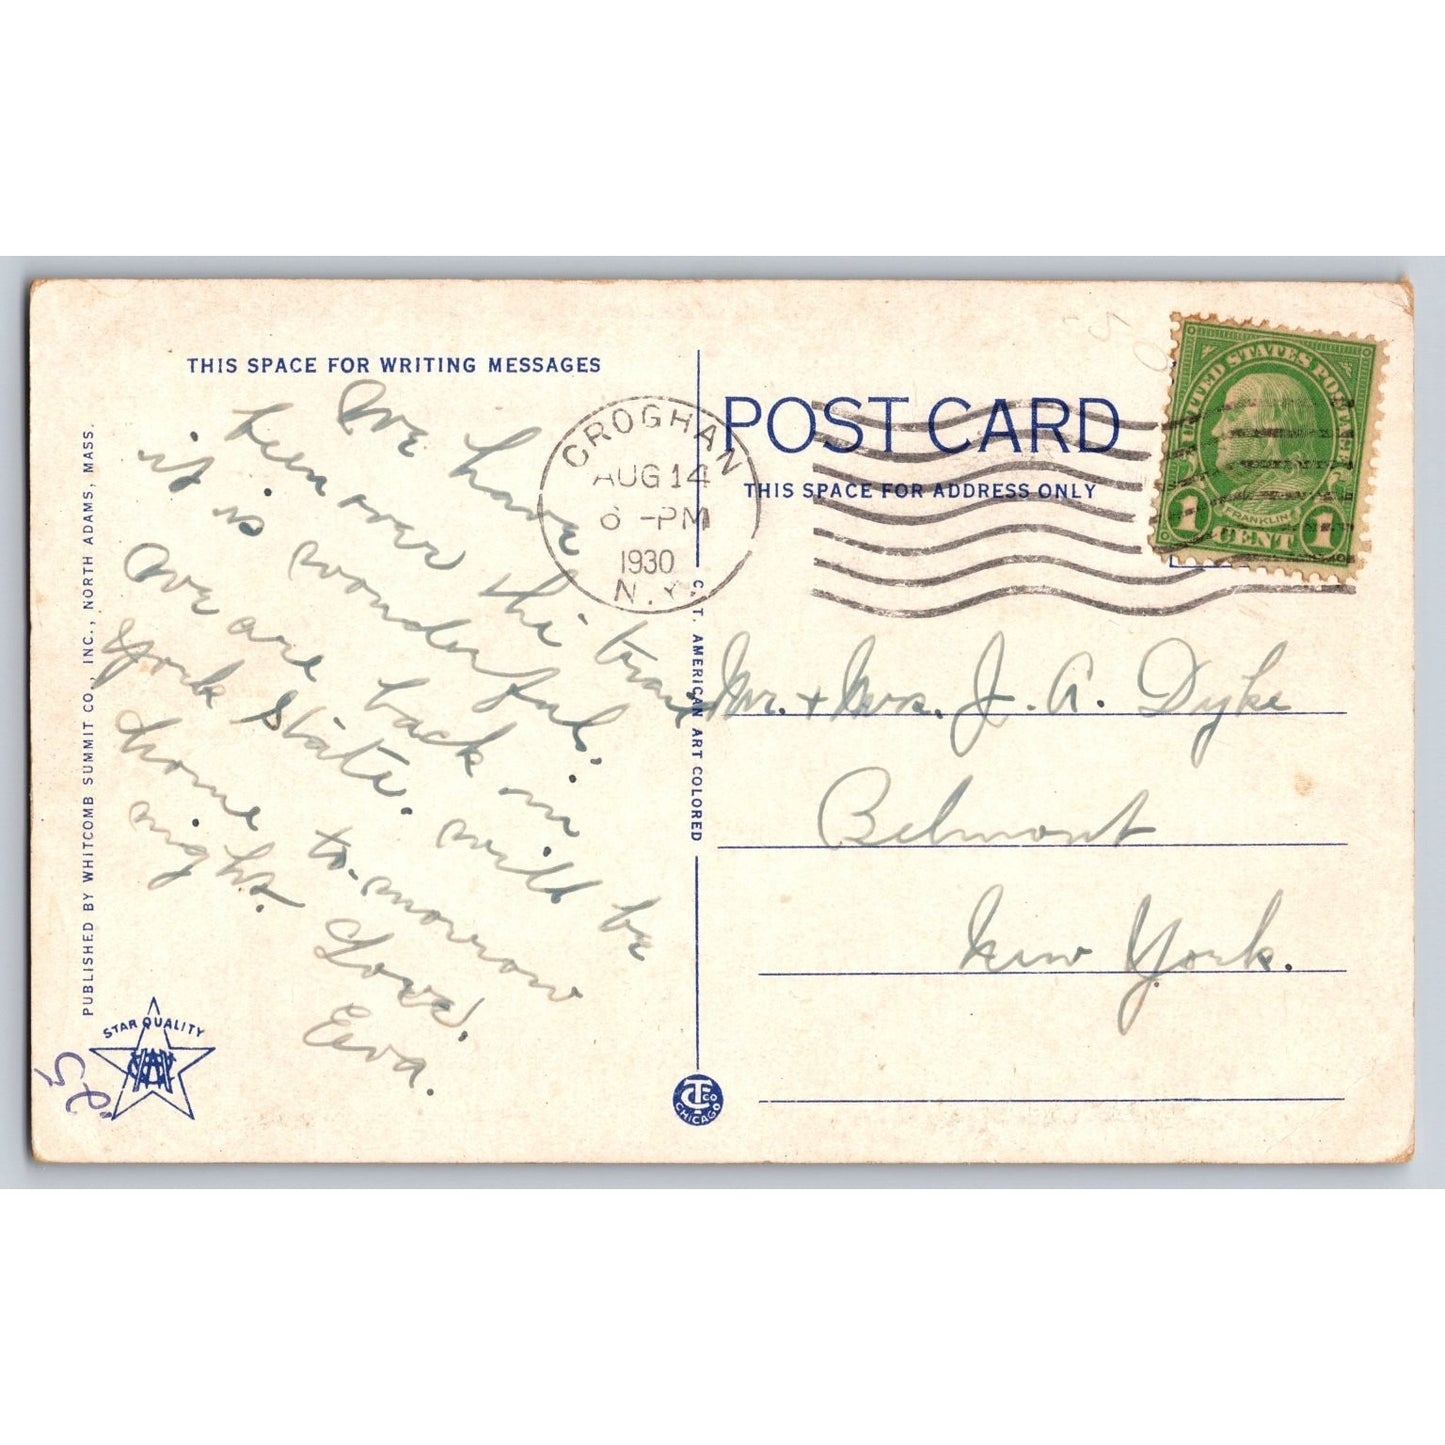 THIS SPACE FOR WRITING MESSAGES
We have
been over the trail
it is wonderful.
We are back in
York State. will be
home to-morrow
night.
Love,
Eva.
PUBLISHED BY WHITCOMB SUMMIT CO., INC., NORTH ADAMS, MASS.
STAR QUALITY
C. T. AMERICAN ART COLORED
CT CO
CHICAGO
CROGHAN
AUG 14
6 -PM
1930
N.Y.
POST CARD
THIS SPACE FOR ADDRESS ONLY
UNITED STATES POSTAGE
FRANKLIN
1 CENT 1
Mr. + Mrs. J. A. Dyke
Belmont
New York.